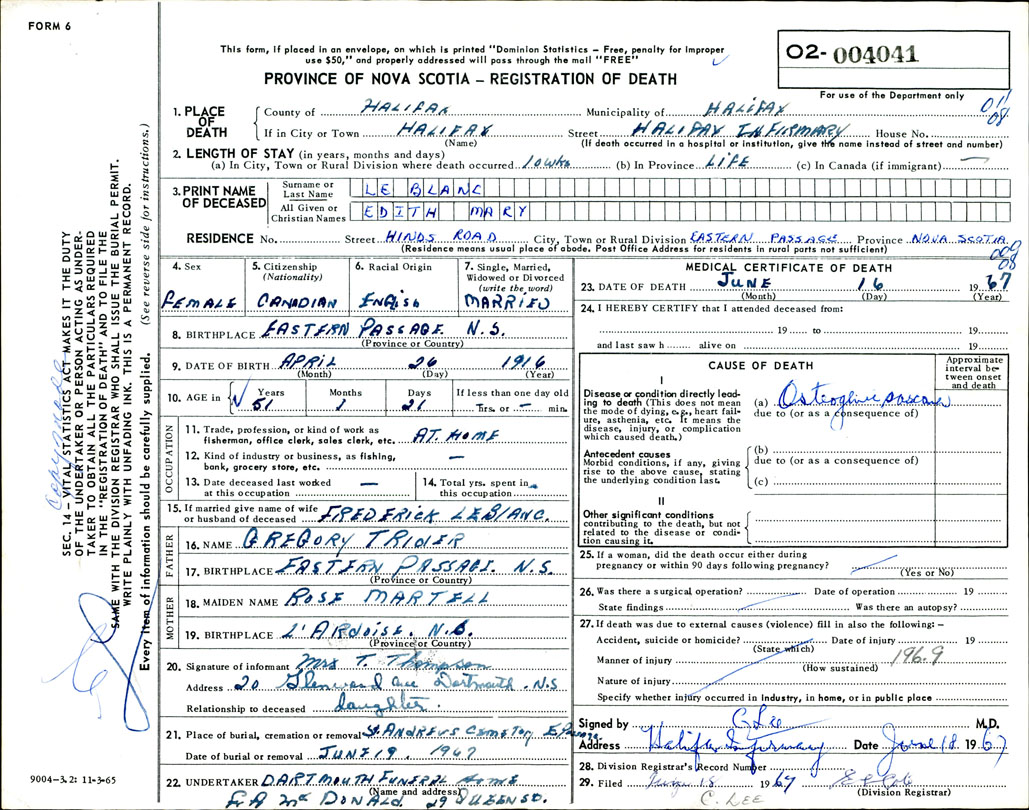 FORM 6
This form, if placed in an envelope, on which is printed "Dominion Statistics – Free, penalty for improper
use $50," and properly addressed will pass through the mail "FREE"
PROVINCE OF NOVA SCOTIA – REGISTRATION OF DEATH
O2- 004041
For use of the Department only
011
08
1. PLACE OF DEATH
County of HALIFAX Municipality of HALIFAX
If in City or Town HALIFAX Street HALIFAX INFIRMARY House No.
(Name) (If death occurred in a hospital or institution, give the name instead of street and number)
2. LENGTH OF STAY (in years, months and days)
(a) In City, Town or Rural Division where death occurred 10 wks (b) In Province LIFE (c) In Canada (if immigrant) —
3. PRINT NAME OF DECEASED
Surname or Last Name LE BLANC
All Given or Christian Names EDITH MARY
RESIDENCE No. Street HINDS ROAD City, Town or Rural Division EASTERN PASSAGE Province NOVA SCOTIA
(Residence means usual place of abode. Post Office Address for residents in rural parts not sufficient)
009
08
4. Sex
FEMALE
5. Citizenship
(Nationality)
CANADIAN
6. Racial Origin
ENGLISH
7. Single, Married,
Widowed or Divorced
(write the word)
MARRIED
8. BIRTHPLACE EASTERN PASSAGE N.S.
(Province or Country)
9. DATE OF BIRTH APRIL 26 1916
(Month) (Day) (Year)
10. AGE in
Years Months Days If less than one day old
51 1 21 hrs. or — min.
OCCUPATION
11. Trade, profession, or kind of work as
fisherman, office clerk, sales clerk, etc. AT HOME
12. Kind of industry or business, as fishing,
bank, grocery store, etc. —
13. Date deceased last worked
at this occupation —
14. Total yrs. spent in
this occupation
15. If married give name of wife
or husband of deceased FREDERICK LEBLANC.
FATHER
16. NAME GREGORY TRIDER
17. BIRTHPLACE EASTERN PASSAGE. N.S.
(Province or Country)
MOTHER
18. MAIDEN NAME ROSE MARTELL
19. BIRTHPLACE L'ARDOISE. N.S.
(Province or Country)
20. Signature of informant Mrs T. Thompson
Address 20 Glenwood Ave Dartmouth . N.S
Relationship to deceased daughter.
21. Place of burial, cremation or removal St. ANDREWS CEMETERY E. Passage.
Date of burial or removal JUNE 19 1967
22. UNDERTAKER DARTMOUTH FUNERAL HOME
(Name and address)
G A McDONALD 29 QUEEN ST.
MEDICAL CERTIFICATE OF DEATH
23. DATE OF DEATH JUNE 16 1967
(Month) (Day) (Year)
24. I HEREBY CERTIFY that I attended deceased from:
19 to 19
and last saw h alive on 19
CAUSE OF DEATH
Approximate
interval between onset
and death
I
Disease or condition directly leading to death (This does not mean
the mode of dying, e.g., heart failure, asthenia, etc. It means the
disease, injury, or complication
which caused death.)
(a) Osteogenic sarcoma
due to (or as a consequence of)
Antecedent causes
Morbid conditions, if any, giving
rise to the above cause, stating
the underlying condition last.
(b)
due to (or as a consequence of)
(c)
II
Other significant conditions
contributing to the death, but not
related to the disease or condition causing it.
25. If a woman, did the death occur either during
pregnancy or within 90 days following pregnancy?
(Yes or No)
26. Was there a surgical operation? Date of operation 19
State findings Was there an autopsy?
27. If death was due to external causes (violence) fill in also the following: –
Accident, suicide or homicide? Date of injury 19
(State which)
Manner of injury 196.9
(How sustained)
Nature of injury
Specify whether injury occurred in industry, in home, or in public place
Signed by C Lee M.D.
Address Halifax Infirmary Date June 18. 1967
28. Division Registrar's Record Number
29. Filed 18 1967
(Division Registrar)
C. LEE
SEC. 14 – VITAL STATISTICS ACT MAKES IT THE DUTY
OF THE UNDERTAKER OR PERSON ACTING AS UNDER-
TAKER TO OBTAIN ALL THE PARTICULARS REQUIRED
IN THE "REGISTRATION OF DEATH" AND TO FILE THE
SAME WITH THE DIVISION REGISTRAR WHO SHALL ISSUE THE BURIAL PERMIT.
WRITE PLAINLY WITH UNFADING INK. THIS IS A PERMANENT RECORD.
Every item of information should be carefully supplied. (See reverse side for instructions.)
9004–3.2: 11-3-65